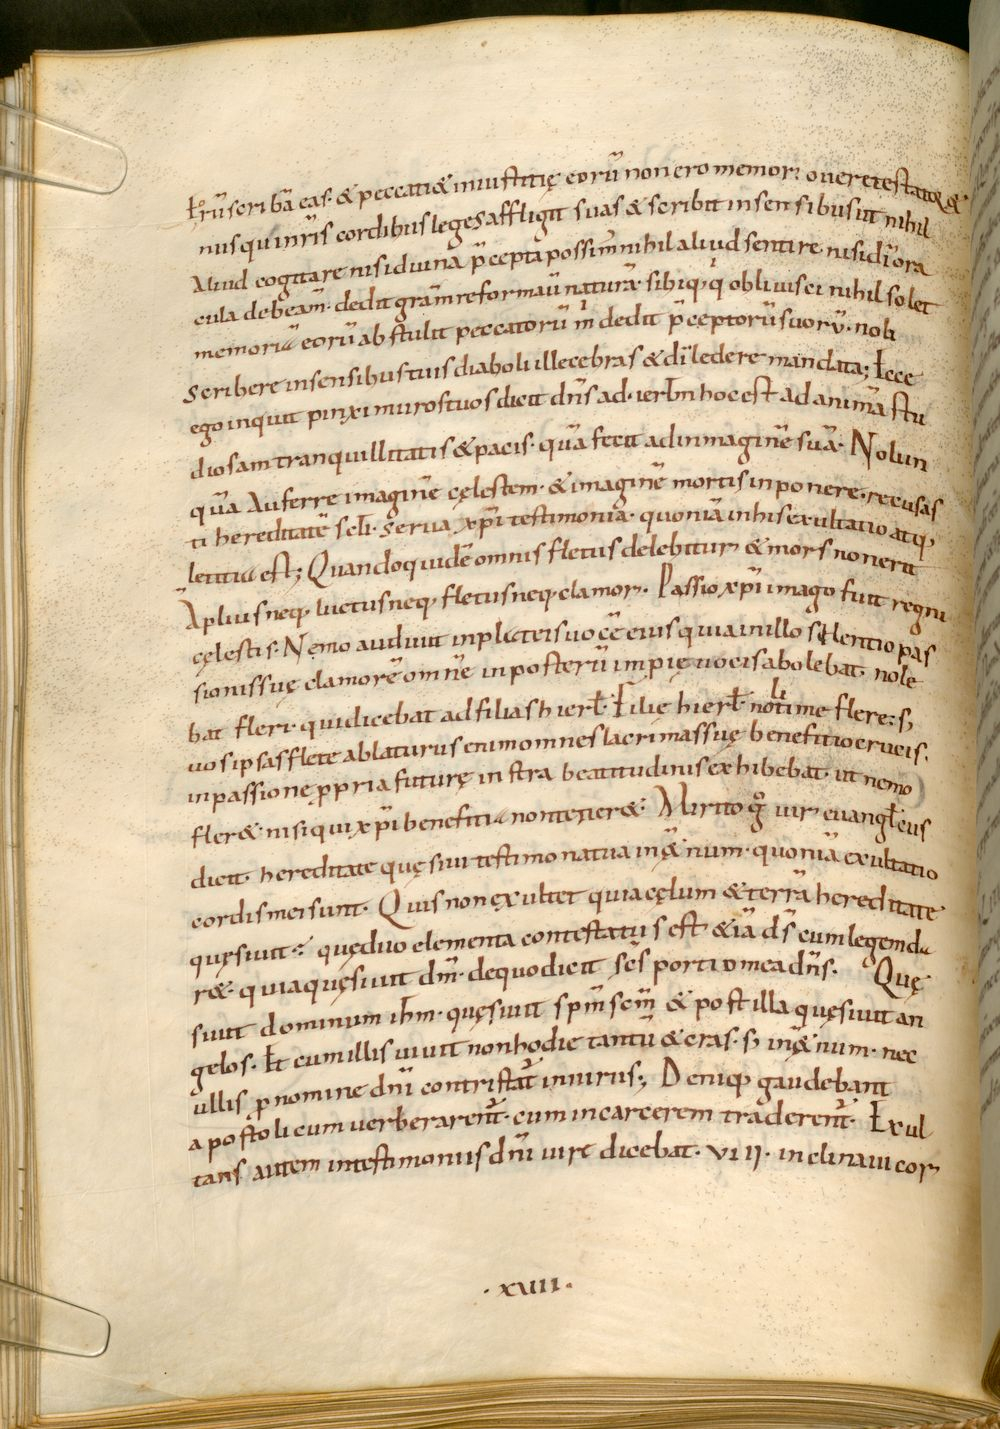 Et rū scribā eas· & peccati & iniustitię eorū non ero memor· o vere testator &
nus qui in nr̄is cordibus leges affligit suas & scribit in sensibus ut nihil
Aliud cogitare nisi divina p̄cepta possim̄ nihil aliud sentire nisi di ora
cula debeam̄· dedit gram̄ reformauit naturā· sibiq· q obliuisci nihil solet
memoriā eorū abstulit peccatorū m̄ dedit p̄ceptorū suorū· noli
scribere in sensibus tuis diaboli illecebras & di ledere mandata; Ecce
ego inquit pinxi muros tuos dicit dn̄s ad· ierlm̄ hoc est ad animā stu
diosam tranquillitatis & pacis· quā fecit ad inmaginē suā· Nolun
quā Auferre imaginē cęlestem· & imaginē mortis inponere· recusas
ti hereditatē scli· serva xp̄i testimonia· quoniā in his exultatio atq;
letitia est; Quandoquidē omnis fletus delebitur & mors non erit
Ap̄lius neq· luctus neq· fletus neq· clamor· Passio xp̄i imago fuit regni
cęlestis: Nemo audiuit in plateis uocē eius quia in illo silentio pas
sionis suę clamorē omnē in posterū impię uocis abolebat· nole
bat fleri· qui dicebat ad filias hierł· Filię hierł nolite me flere: s;
uos ipsas flete ablaturus enim omnes lacrimas suę benefitio crucis·
in passione propria futurę in stra beatitudinis exhibebat· ut nemo
fler&· nisi qui xp̄i benefitia non tener&· Mirito g̊ uir euangłcus
dicit· hereditate quęsiui testimonia tua in &̄num· quoniā exultatio
cordis mei sunt· Quis non exultet quia cęlum & terrā hereditate
quęsiuit· quę duo elementa contestatus est & iā ds̄ cum legem da
r&· quia quęsiuit dm̄· de quo dicit scs̄ portio mea dn̄s· Quę
siuit dominum ihm̄· quęsiuit spm̄ scm̄ & post illa quęsiuit an
gelos· Et cum illis uiuit non hodie tantū & cras· s; in &̄num· nec
ullis p nomine dn̄i contristat̄ iniuriis; Deniq; gaudebant
apostoli cum uerberarent̄· cum in carcerem traderent̄· Exul
tans autem in testimoniis dn̄i uire dicebat· VIII· inclinaui cor
· XVIII ·